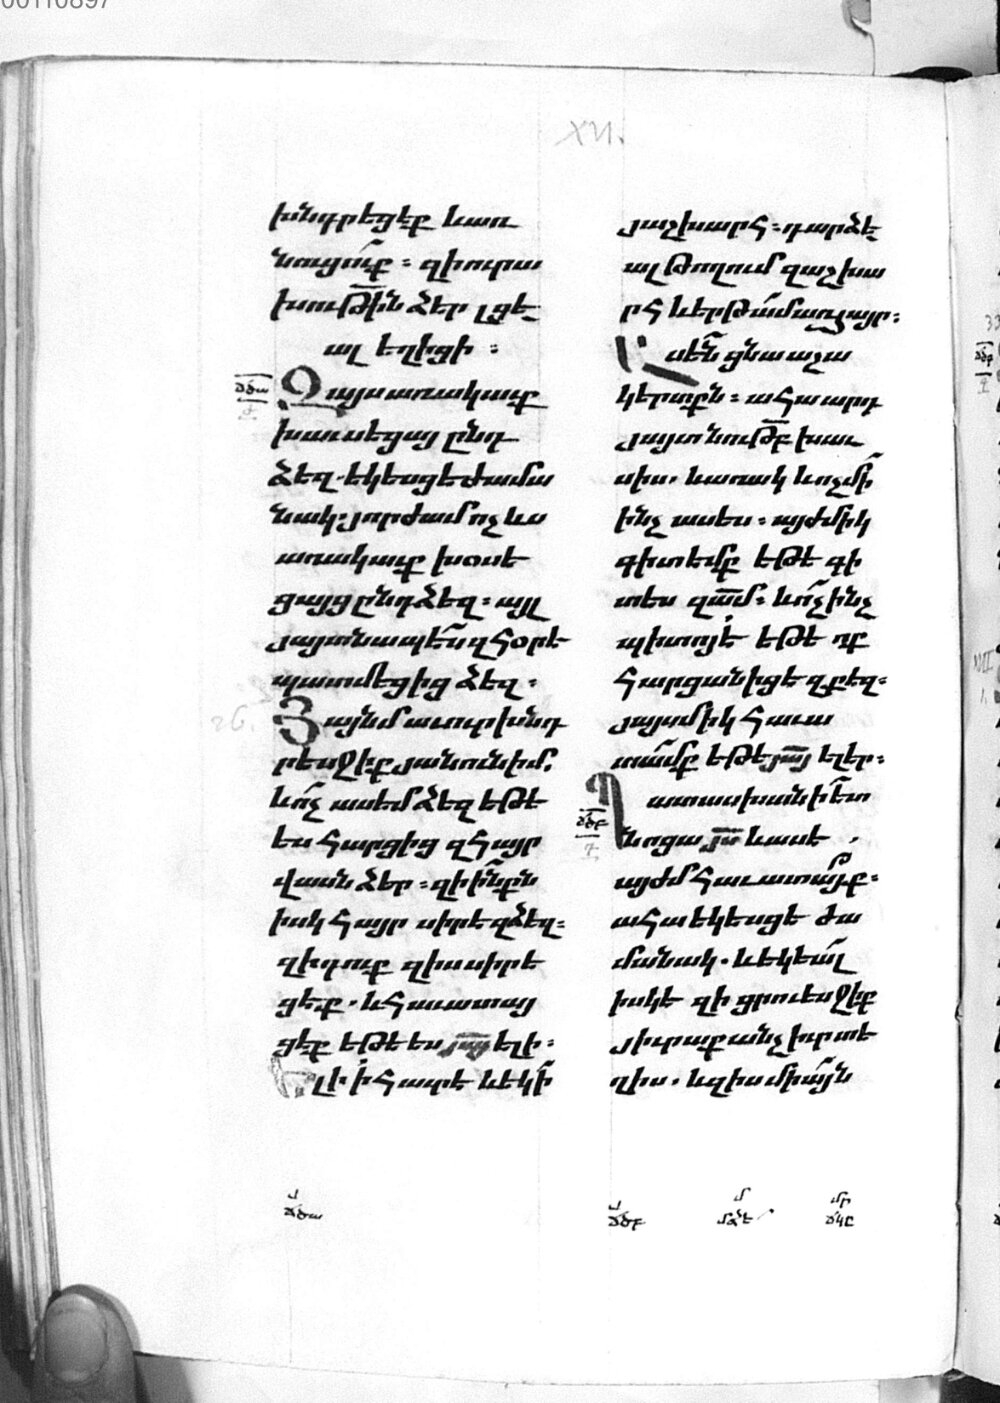 00110897
XVI.
խնդրեցէք և առ
նուցո՛ւք ։ զի ուրա
խութի՛ւն ձեր լցե
ալ եղիցի ։
ճծա
Զայս առակաւք
խաւսեցայ ընդ
ձեզ . եկեսցե ժամա
նակ ։ յորժամ ոչ ևս
առակաւք խօսե
ցայց ընդ ձեզ ։ այլ
յայտնապէս զհօրե
պատմեցից ձեզ ։
26.
Յայնմ աւուր խնդ
րեսջիք յանուն իմ .
և ոչ ասեմ ձեզ եթե
ես հարցից զհայր
վասն ձեր ։ զի ինքն
իսկ հայր սիրե զձեզ ։
զի դուք զիս սիրե
ցեք . և հաւատայ
ցեք եթե ես յա՟յ ելի ։
Ելի ի հաւրե և եկի
յաշխարհ ։ դարձե
ալ թողում զաշխա
րհ և երթամ առ հայր ։
Ասեն ցնա աշա
կերտքն ։ ահա արդ
յայտնութբ խաւ
սիս . և առակ և ոչ մի
ինչ ասես ։ այժմիկ
գիտեմք եթե գի
տես զա՟մ ։ և ոչ ինչ
պիտոյ է եթե ոք
հարցանիցե զքեզ ։
յայսմիկ հաւա
տամք եթե յա՟յ ելեր ։
ճծբ
Պատասխանի ետ
նոցա յս՟ և ասե .
այժմ հաւատայք ։
ահա եկեսցե ժա
մանակ . և եկեալ
իսկ է զի ցրուեսջիք
յիւրաքանչիւր տե
ղիս . և զիս միայն
ճծա
ճծբ
մ
մձե
մր
ճկը